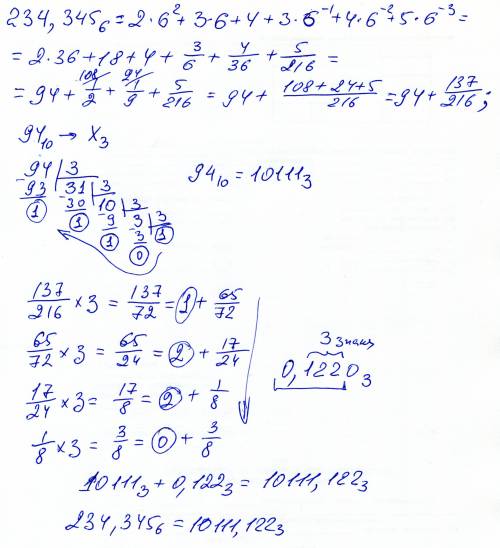 234,345₆ = 2·6² + 3·6 + 4 + 3·6⁻¹ + 4·6⁻² + 5·6⁻³ =
= 2·36 + 18 + 4 + 3/6 + 4/36 + 5/216 =
= 94 + 108/ 1/2 + 24/ 1/9 + 5/216 = 94 + (108+24+5)/216 = 94 + 137/216;
94₁₀ → X₃
94 | 3
93 31 | 3
1 30 10 | 3
1 9 3 | 3
1 3 1
0
94₁₀ = 10111₃
137/216 × 3 = 137/72 = 1 + 65/72
65/72 × 3 = 65/24 = 2 + 17/24
17/24 × 3 = 17/8 = 2 + 1/8
1/8 × 3 = 3/8 = 0 + 3/8
3 знака
0,1220₃
10111₃ + 0,122₃ = 10111,122₃
234,345₆ = 10111,122₃